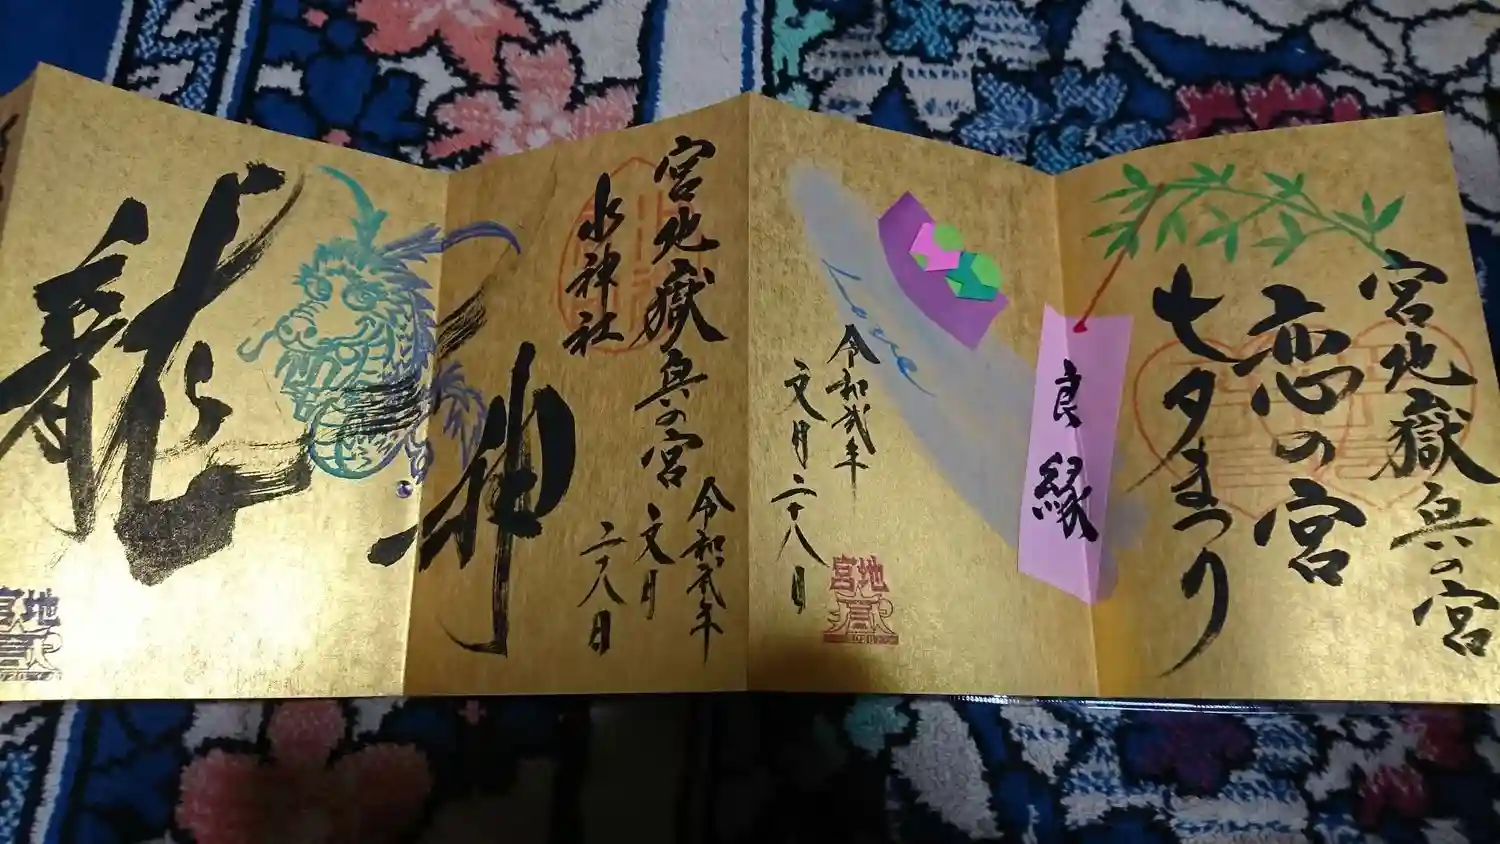 宮地嶽奥の宮
恋の宮
七夕まつり
良縁
Love
令和弐年
文月二十八日
宮地嶽
宮地嶽奥の宮
水神社
令和弐年
文月
二十八日
龍神
宮地嶽